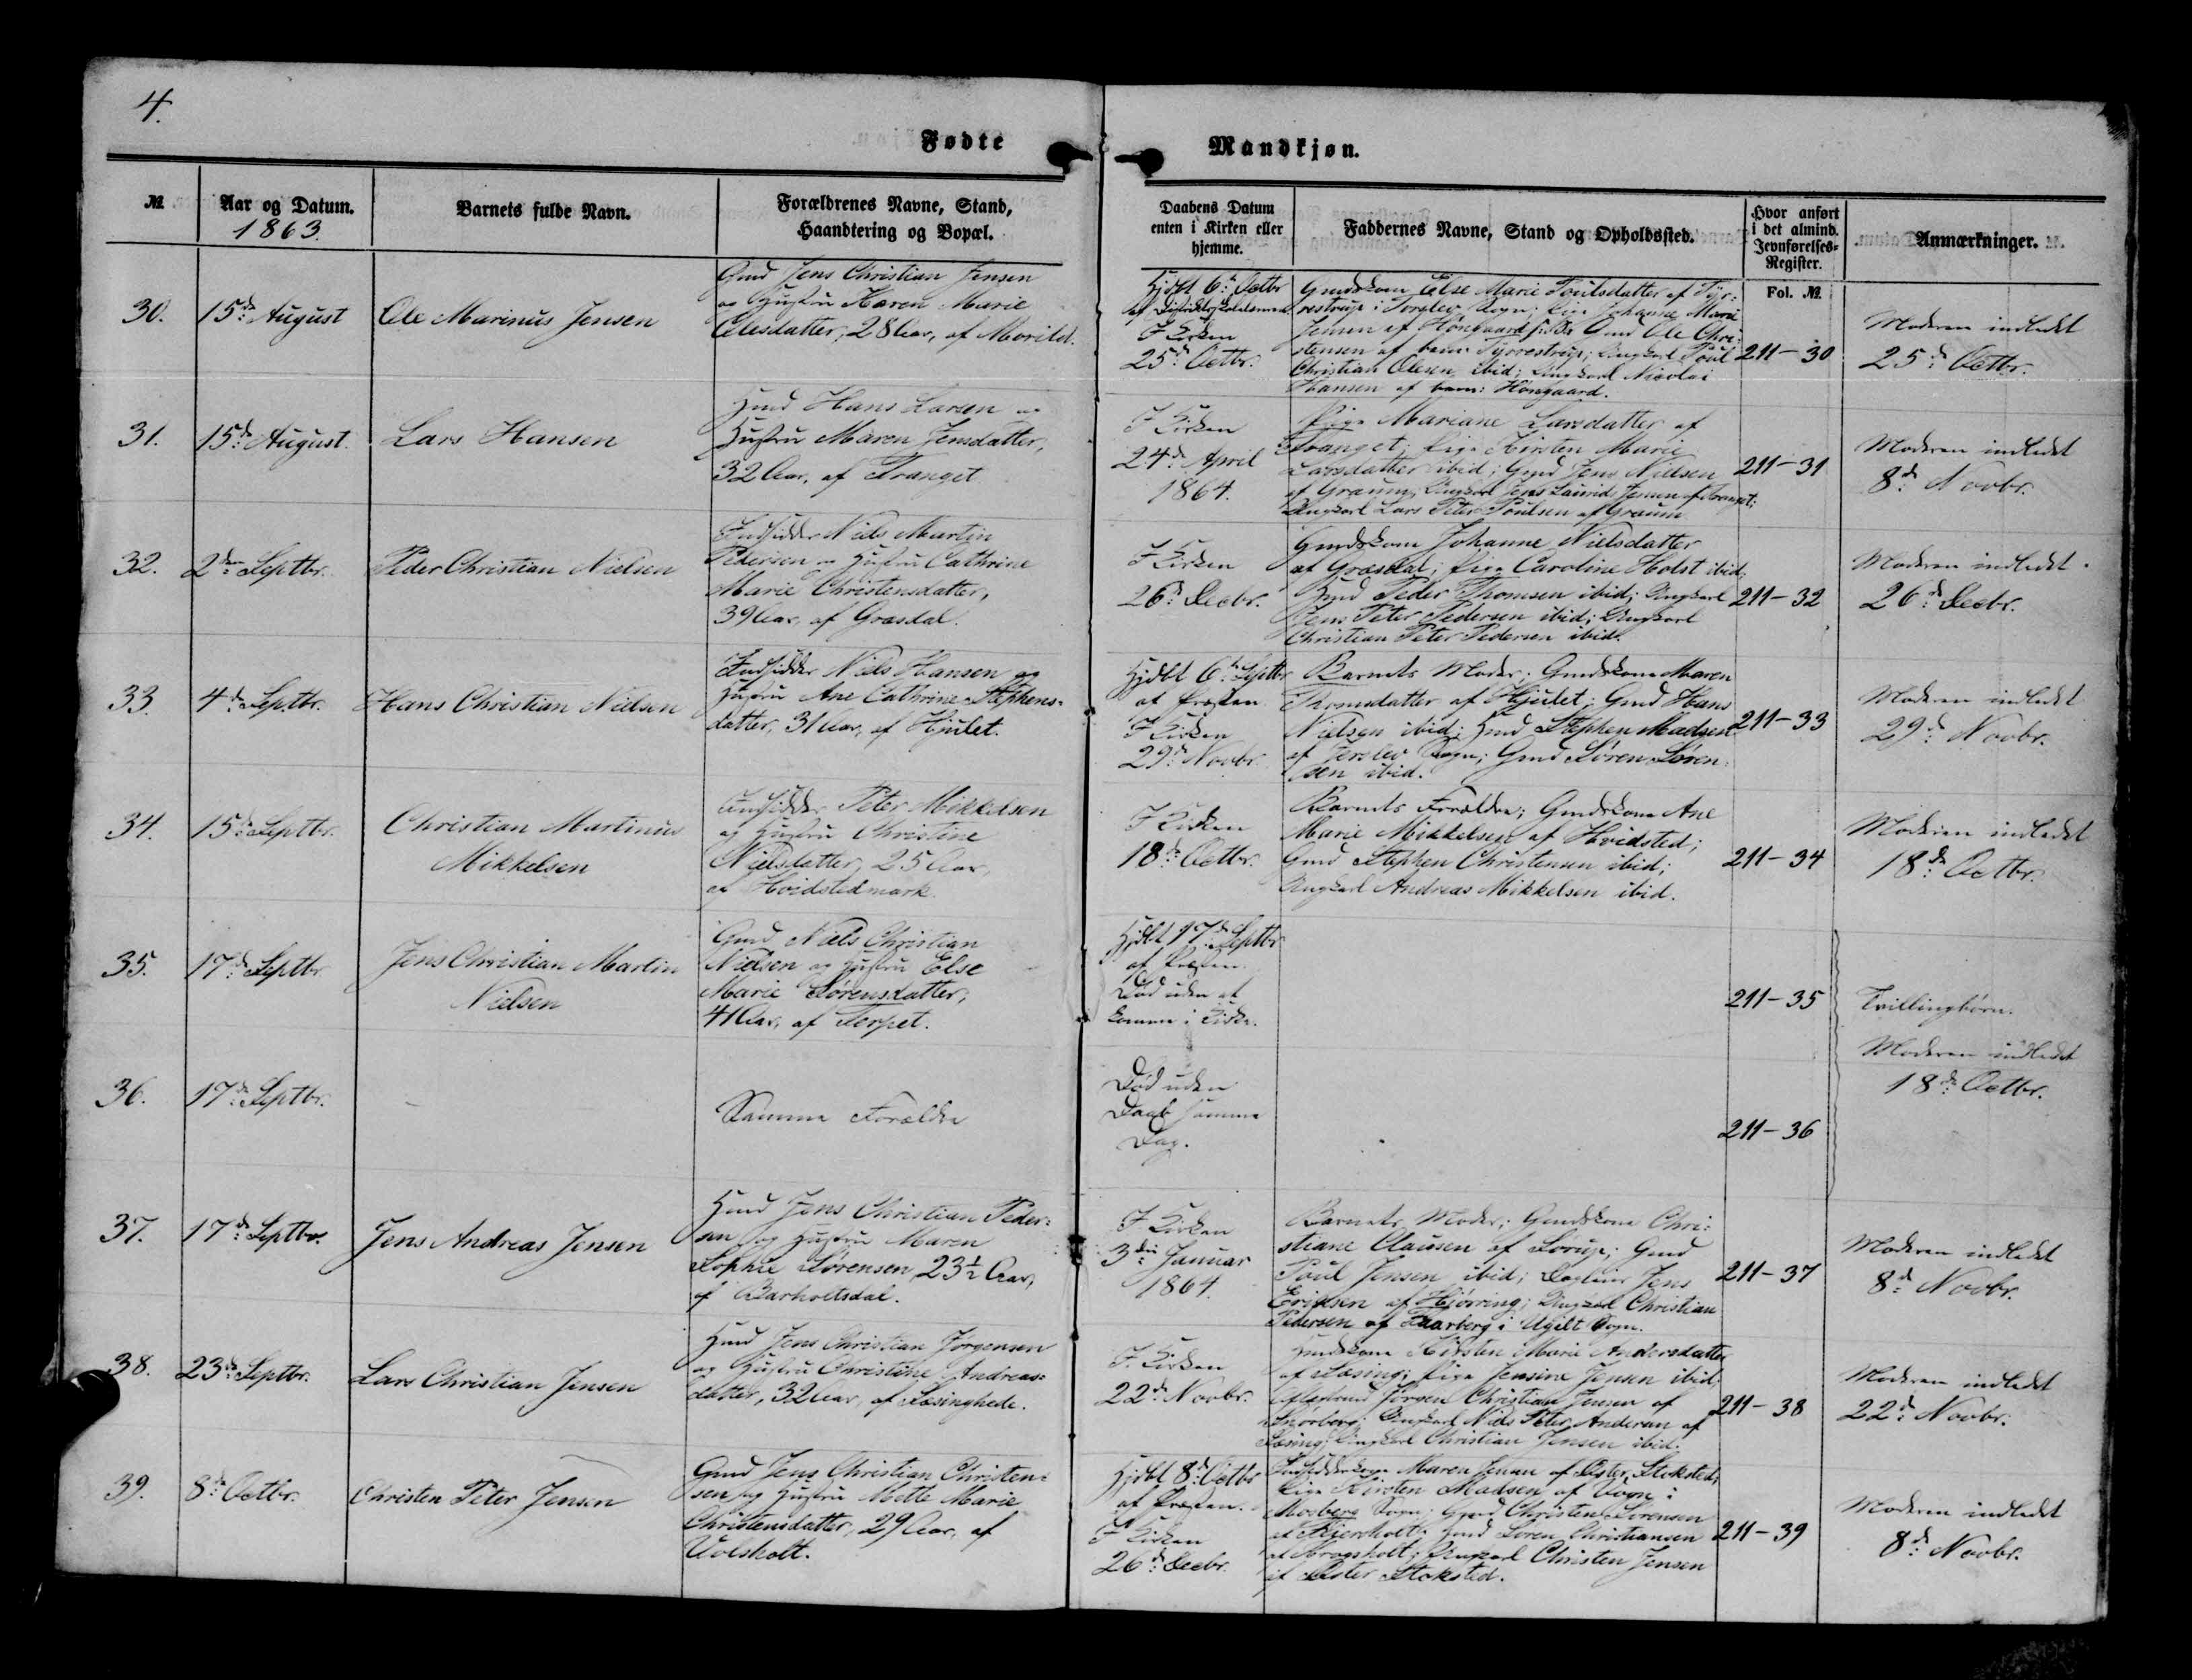 4.
Fødte
Mandkjøn.
№
Aar og Datum.
1863.
Barnets fulde Navn.
Forældrenes Navne, Stand,
Haandtering og Bopæl.
Daabens Datum
enten i Kirken eller
hjemme.
Faddernes Navne, Stand og Opholdssted.
Hvor anført
i det almind.
Jevnførelses-
Register.
Fol. №
Anmærkninger.
30.
15de August
Ole Marinus Jensen
Gmd Jens Christian Jensen
og Hustru Karen Marie
Olesdatter, 28 Aar, af Morild.
Hjdbt 6te Octbr
I Kirken
25de Octbr.
Gmdskone Else Marie Poulsdatter af Tyr-
restrup i Torslev Sogn; Pige Johanne Marie
Jensen af Høngaard; Gmd Ole Chri-
stensen af Tyrrestrup; Ungkarl Poul
Christian Olesen, ibid; Ungkarl Nicolai
Hansen af Høngaard.
211-30
Moderen indledt
25de Octbr.
31.
15de August.
Lars Hansen
Hmd Hans Larsen og
Hustru Maren Jensdatter,
32 Aar, af Tranget
I Kirken
24de April
1864.
Pige Mariane Larsdatter af
Tranget; Pige Kirsten Marie
Larsdatter ibid; Gmd Jens Nielsen
af Graum; Ungkarl Jens Laurids Jensen af Tranget;
Ungkarl Lars Peter Poulsen af Graum
211-31
Moderen indledt
8de Novbr.
32.
2den Septbr.
Peder Christian Nielsen
Indsidder Niels Martin
Pedersen og Hustru Cathrine
Marie Christensdatter,
39 Aar, af Græsdal.
I Kirken
26de Decbr.
Gmdskone Johanne Nielsdatter
af Græsdal; Pige Caroline Holst ibid;
Hmd Peder Thomsen ibid; Ungkarl
Jens Peter Pedersen ibid; Ungkarl
Christian Peter Pedersen ibid.
211-32
Moderen indledt.
26de Decbr.
33.
4de Septbr.
Hans Christian Nielsen
Indsidder Niels Hansen og
Hustru Ane Cathrine Stephens-
datter, 31 Aar, af Hjulet.
Hjdbt 6te Septbr
af Præsten
I Kirken
29de Novbr
Barnets Moder; Gmdskone Maren
Thomsdatter af Hjulet; Gmd Hans
Nielsen ibid; Hmd Stephen Madsen
af Jerslev Sogn; Gmd Søren Søren-
sen ibid.
211-33
Moderen indledt
29de Novbr.
34.
15de Septbr.
Christian Martinus
Mikkelsen
Indsidder Peter Mikkelsen
og Hustru Christine
Nielsdatter, 25 Aar,
af Hvidstedmark.
I Kirken
18de Octbr.
Barnets Forældre; Gmdskone Ane
Marie Mikkelsen af Hvidsted;
Gmd Stephen Christensen ibid;
Ungkarl Andreas Mikkelsen ibid.
211-34
Moderen indledt
18de Octbr.
35.
17de Septbr
Jens Christian Martin
Nielsen
Gmd Niels Christian
Nielsen og Hustru Else
Marie Sørensdatter,
41 Aar, af Terpet.
Hjdbt 17de Septbr
af Præsten.
Død uden at
komme i Kirke.
211-35
Tvillingbørn.
Moderen indledt
18de Octbr.
36.
17de Septbr.
-
Samme Forældre
Død uden
Daab samme
Dag.
211-36
37.
17de Septbr.
Jens Andreas Jensen
Hmd Jens Christian Peder-
sen og Hustru Maren
Sophie Sørensen 23½ Aar,
af Barholtsdal.
I Kirken
3die Januar
1864.
Barnets Moder; Gmdskone Chri-
stiane Clausen af Sørup; Gmd
Poul Jensen ibid; Dagleier Jens
Eriksen af Hjørring; Ungkarl Christian
Pedersen af Taarberg i Ugilt Sogn.
211-37
Moderen indledt
8de Novbr.
38.
23de Septbr.
Lars Christian Jensen
Hmd Jens Christian Jørgensen
og Hustru Christiane Andreas-
datter, 32 Aar, af Sæsinghede.
I Kirken
22de Novbr.
Hmdskone Kirsten Marie Andersdatter
af Sæsing; Pige Jensine Jensen ibid;
Jørgen Christian Jensen af
Ungkarl Niels Peter Andersen af
Sæsing; Ungkarl Christian Jensen ibid.
211-38
Moderen indledt
22de Novbr.
39.
8de Octbr.
Christen Peter Jensen
Gmd Jens Christian Christen-
sen og Hustru Mette Marie
Christensdatter, 29 Aar, af
Volsholt.
Hjdbt 8de Octbr
af Præsten.
I Kirken
26de Decbr.
Indsidderkone Maren Jensen af Øster Stoksted;
Pige Kirsten Madsen af Vogn i
Mosberg Sogn; Gmd Christen Sørensen
af Kjersholt; Hmd Søren Christiansen
af Kragsholt; Ungkarl Christen Jensen
af Øster Stoksted.
211-39
Moderen indledt
8de Novbr.